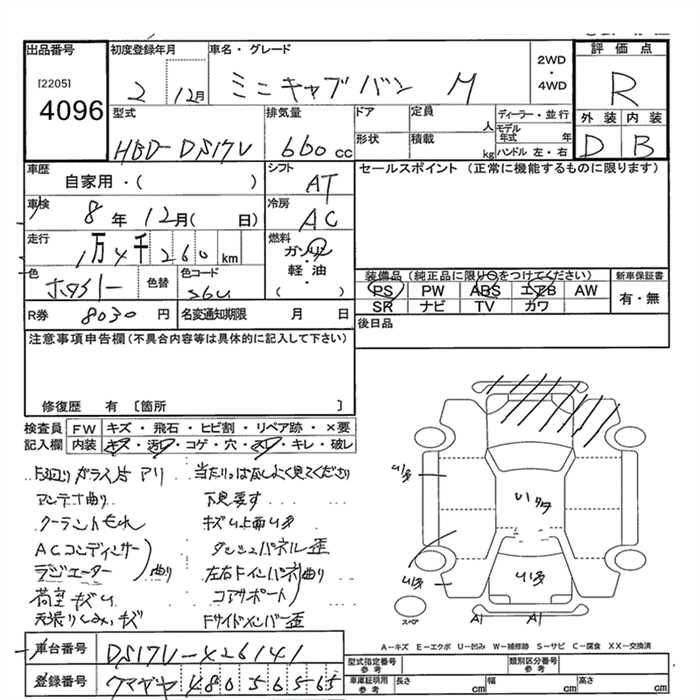 出品番号 初度登録年月 車名・グレード 2WD ・ 4WD 評価点
[2205]
4096 2 12月 ミニキャブバン M R
型式 排気量 ドア 定員 人 ディーラー・並行 外装 内装
HBD-DS17V 660cc 形状 積載 kg モデル年式 年 ハンドル 左・右 D B
車歴 自家用・( ) シフト AT セールスポイント (正常に機能するものに限ります)
車検 8年 12月( 日) 冷房 AC
走行 1万4千260km 燃料 ガソリン・軽油 ( )
色 色替 色コード 装備品(純正品に限り○をつけてください) 新車保証書
PS PW ABS エアB AW 有・無
SR ナビ TV カワ
R券 8030円 名変通知期限 月 日 後日品
注意事項申告欄(不具合内容等は具体的に記入して下さい)
修復歴 有 〔箇所 〕
検査員 FW キズ・飛石・ヒビ割・リペア跡・×要
記入欄 内装 キズ・汚れ・コゲ・穴・スレ・キレ・破レ
ガラス片アリ
アンテナ曲り 下見要す
クーラントもれ キズ
ACコンディサー ダッシュパネル歪
ラジエーター 曲り 左右Fインパネ曲り
荷室キズ コアサポート
天張り キズ Fサイドメンバー歪
A1 A1
スペア
A-キズ E-エクボ U-凹み W-補修跡 S-サビ C-腐食 XX-交換済
車台番号 DS17V-X26141 型式指定番号 参考 類別区分番号 参考
登録番号 480 車庫証明用 参考 長さ cm 幅 cm 高さ cm